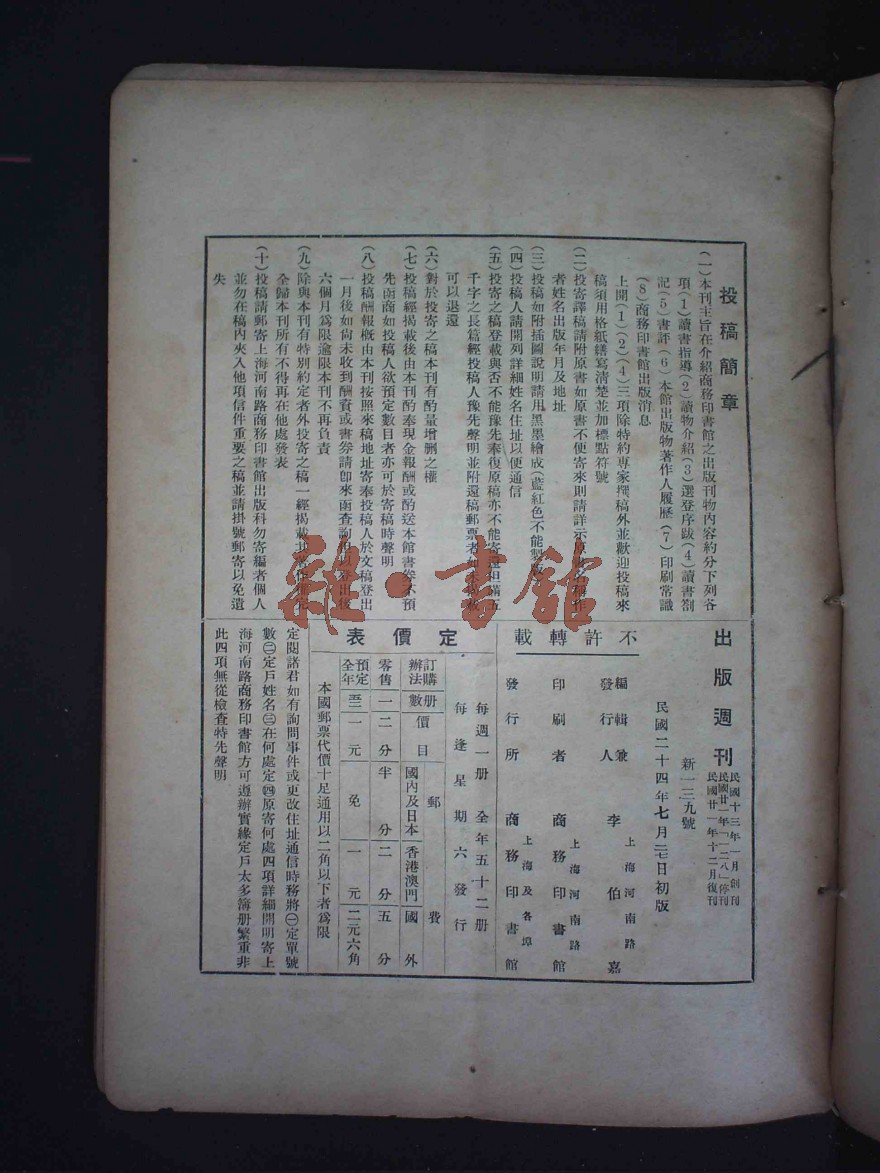 投稿簡章
(一)本刊主旨在介紹商務印書館之出版刊物內容約分下列各
項(1)讀書指導(2)讀物介紹(3)選登序跋(4)讀書劄
記(5)書評(6)本館出版物著作人履歷(7)印刷常識
(8)商務印書館出版消息
上開(1)(2)(4)三項除特約專家撰稿外並歡迎投稿來
稿須用格紙繕寫清楚並加標點符號
(二)投寄譯稿請附原書如原書不便寄來則請詳示原書名稱作
者姓名出版年月及地址
(三)投稿如附插圖說明請用黑墨繪成(藍紅色不能製版)
(四)投稿人請開列詳細姓名住址以便通信
(五)投寄之稿登載與否不能豫先奉復原稿亦不能寄還但滿五
千字之長篇經投稿人豫先聲明並附還稿郵票者如未刊載
可以退還
(六)對於投寄之稿本刊有酌量增删之權
(七)投稿經揭載後由本刊酌奉現金報酬或酌送本館書券不預
先函商如投稿人欲預定數目者亦可於寄稿時聲明
(八)投稿酬報概由本刊按照來稿地址寄奉投稿人於文稿登出
一月後如尚未收到酬資或書券請卽來函查詢但以登出後
六個月爲限逾限本刊不再負責
(九)除與本刊有特別約定者外投寄之稿一經揭載其著作權完
全歸本刊所有不得再在他處發表
(十)投稿請郵寄上海河南路商務印書館出版科勿寄編者個人
並勿在稿內夾入他項信件重要之稿並請掛號郵寄以免遺
失
出版週刊
民國十三年一月創刊
民國廿一年「一二八」停刊
民國廿一年十二月復刊
新一三九號
民國二十四年七月二七日初版
不許轉載
編輯兼
發行人 李伯嘉
上海河南路
印刷者 商務印書館
上海河南路
發行所 商務印書館
上海及各埠
定價表
每週一册 全年五十二册
每逢星期六發行
訂購辦法 册數 價目 郵費
國內及日本 香港澳門 國外
零售 一 二分 半分 二分 五分
預定全年 五二 一元 免 一元 二元六角
本國郵票代價十足通用以二角以下者爲限
定閱諸君如有詢問事件或更改住址通信時務將㊀定單號
數㊁定戶姓名㊂在何處定㊃原寄何處四項詳細開明寄上
海河南路商務印書館方可遵辦實緣定戶太多簿册繁重非
此四項無從檢查特先聲明
雜·書館